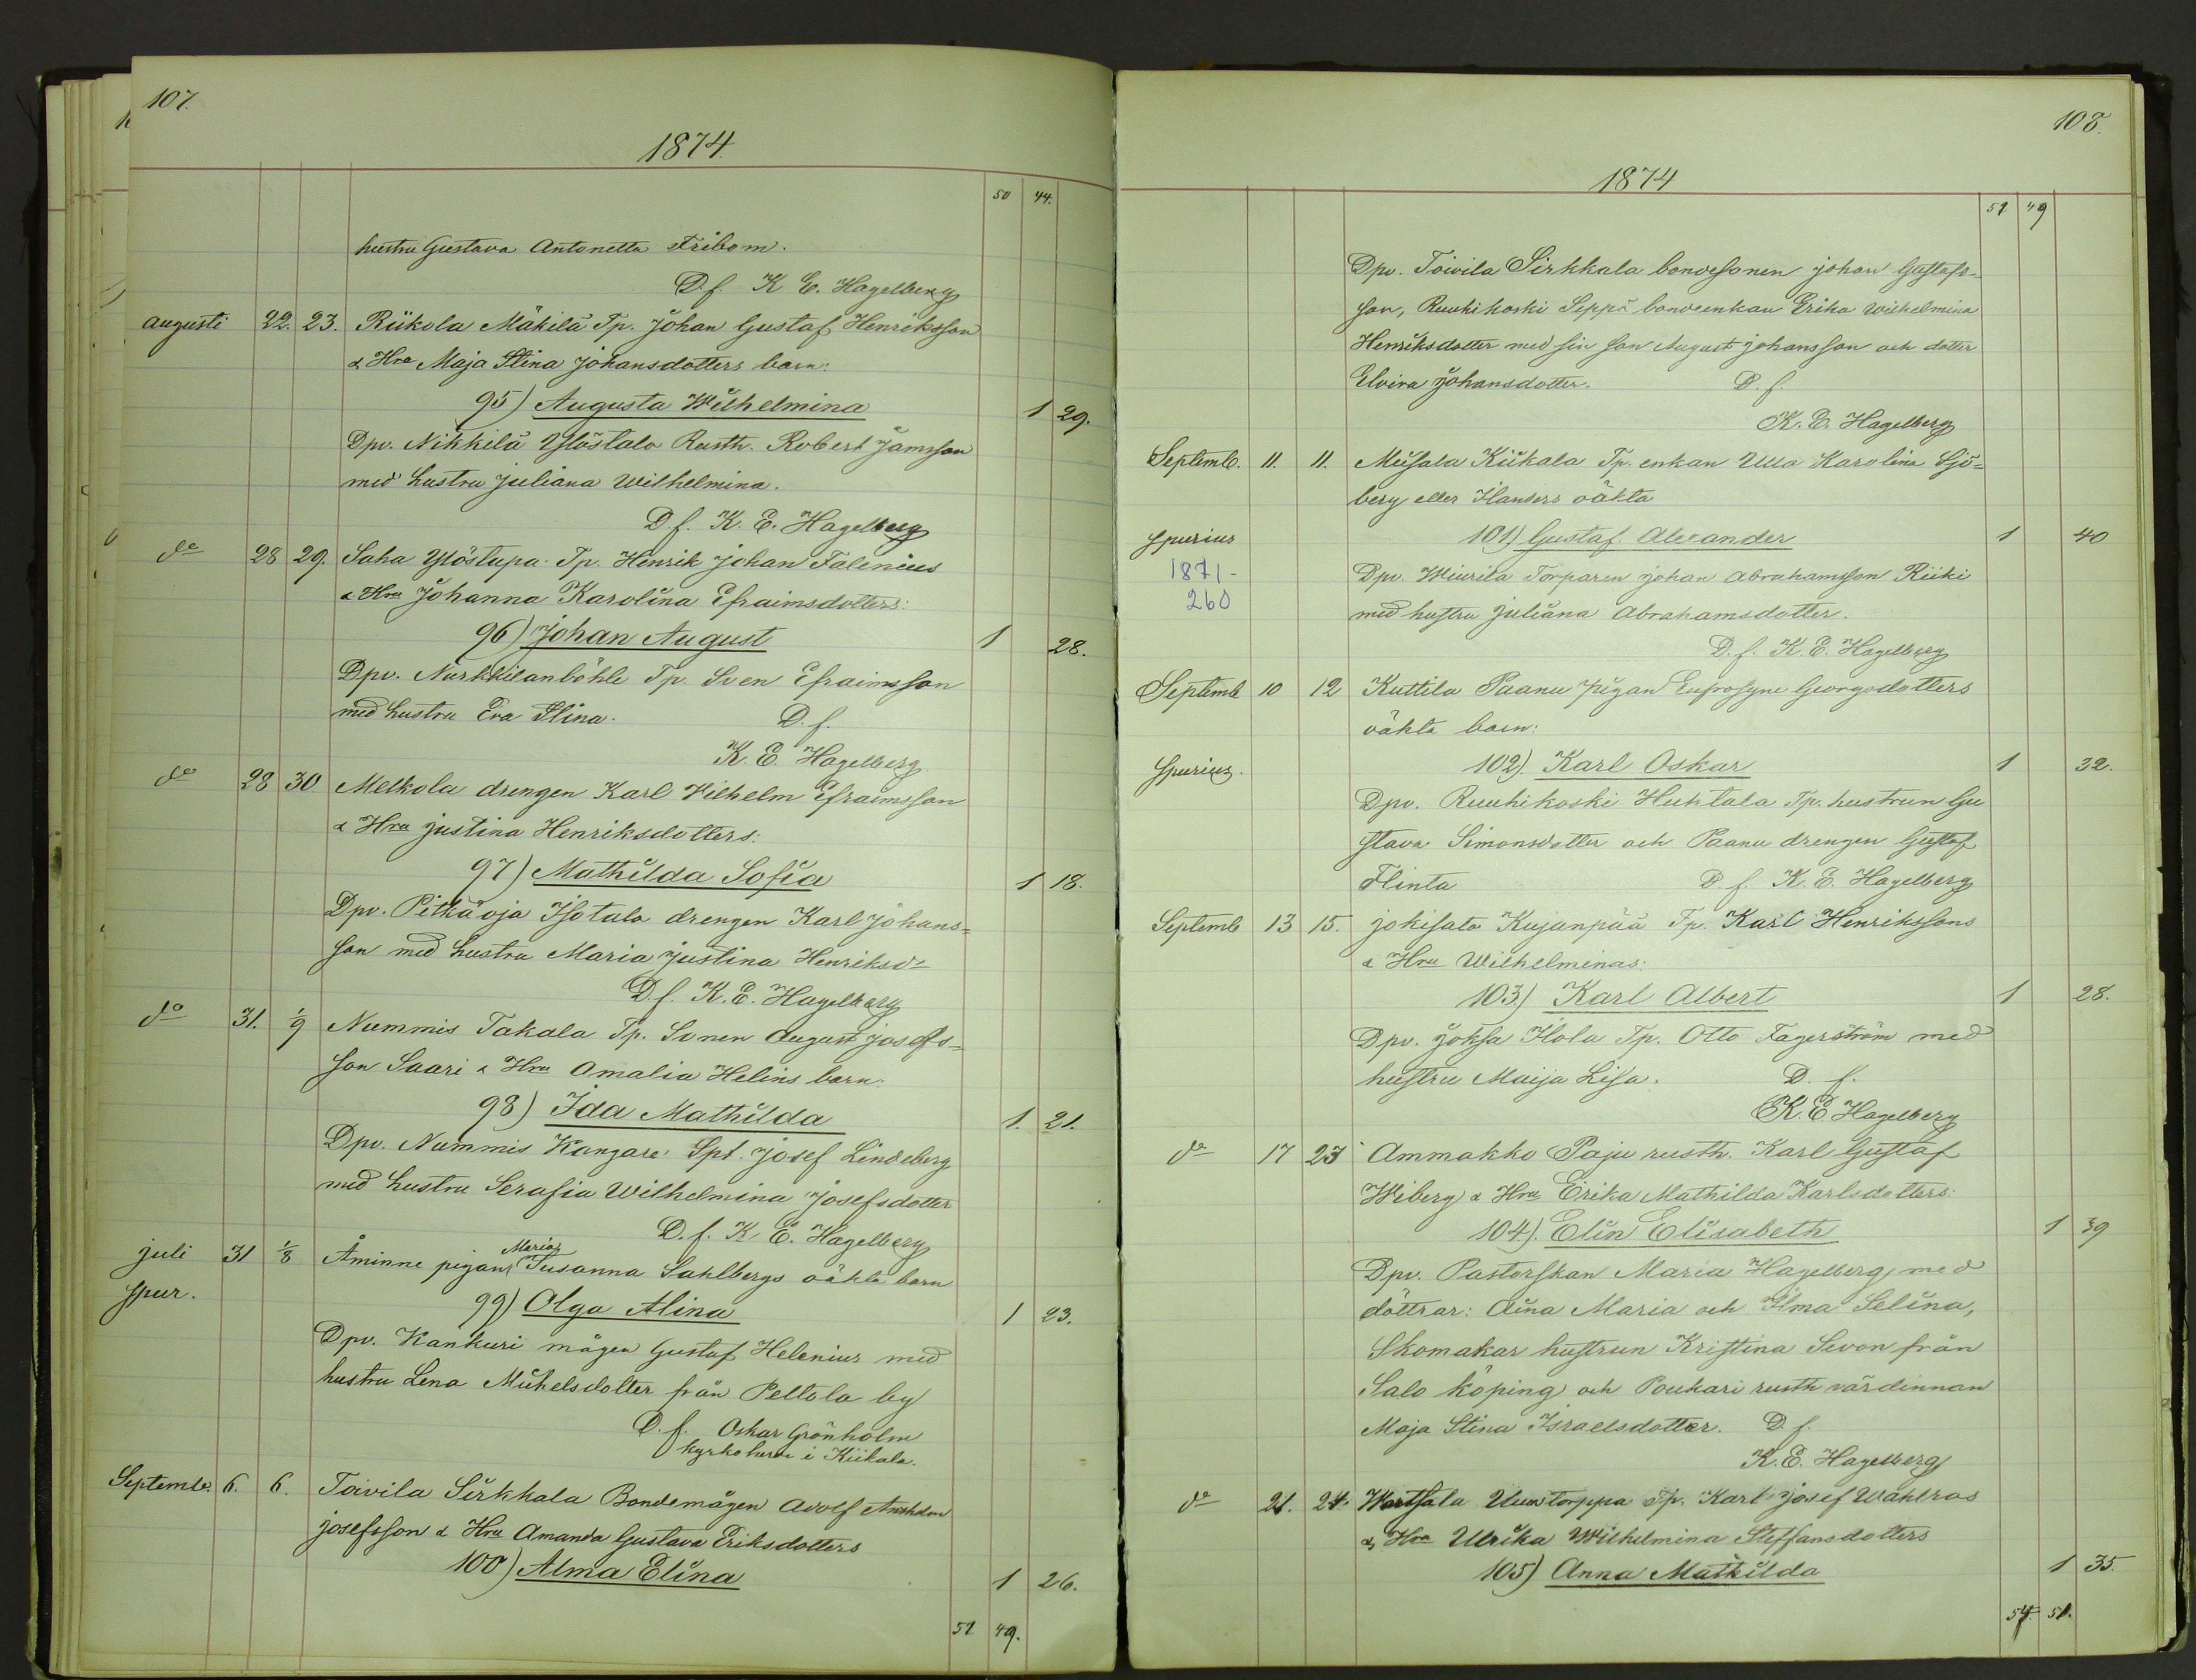 107.
1874.
50 44.
hustru Gustava Antonetta Fribom.
D. f. K E. Hagelberg
augusti 22. 23. Riikola Mäkilä Tp. Johan Gustaf Henriksson
& Hru Maja Stina Johansdotters barn:
95) Augusta Wilhelmina 1 29.
Dpv. Nikkilä Yliöstalo Rusth. Robert Jamsson
med hustru Juliana Wilhelmina.
D. f. K. E. Hagelberg
do 28 29. Saha Yliöstupa Tp. Henrik Johan Falenius
& Hru Johanna Karolina Efraimsdotters:
96) Johan August 1 28.
Dpv. Nurkkilanböhle Tp. Sven Efraimsson
med hustru Eva Stina. D. f.
K. E. Hagelberg
do 28 30 Melkola drengen Karl Vilhelm Efraimsson
& Hru Justina Henriksdotters:
97) Mathilda Sofia 1 18.
Dpv. Pitkäoja Isotalo drengen Karl Johans=
son med hustru Maria Justina Henriksd=
D. f. K. E. Hagelberg
do 31. 1/9 Nummis Takala Tp. Sonen August Josefs=
son Saari & Hru Amalia Helins barn:
98) Ida Mathilda 1. 21.
Dpv. Nummis Kangare Spt. Josef Lindeberg
med hustru Serafia Wilhelmina Josefsdotter
D. f. K. E. Hagelberg
juli 31 1/8 Åminne pigans Maria Susanna Sahlbergs oäkta barn
spur. 99) Olga Alina 1 23.
Dpv. Kankuri mågen Gustaf Helenius med
hustru Lena Mickelsdotter från Peltola by
D. f. Oskar Grönholm
kyrkoherde i Kiikala.
Septemb. 6. 6. Toivila Sirkkala Bondemågen Adolf
Josefsson & Hru Amanda Gustava Eriksdotters
100) Alma Elina 1 26.
51 49.
108.
1874
51 49
Dpv. Toivila Sirkkala bondesonen Johan Gustafs-
son, Ruukikoski Seppä bondeenkan Erika Wilhelmina
Henriksdotter med sin son August Johansson och dotter
Elvira Johansdotter. D. f.
K. E. Hagelberg
Septemb. 11. 11. Meisala Kiikala Tp. enkan Ulla Karolina Sjö=
berg eller Handers oäkta
spurius 101) Gustaf Alexander 1 40
1871-
260
Dpv. Wiurila Torparen Johan Abrahamsson Riiki
med hustru Juliana Abrahamsdotter.
D. f. K. E. Hagelberg
Septemb 10 12 Kuttila Paanu pigan Eufrosyne Georgsdotters
oäkta barn:
spurius. 102). Karl Oskar 1 32.
Dpv. Ruukikoski Huhtala Tp. hustrun Gu
stava Simonsdotter och Paanu drengen Gustaf
Flinta D. f. K. E. Hagelberg
Septemb 13 15. Jokisato Kujanpää Tp. Karl Henrikssons
& Hru Wilhelminas:
103.) Karl Albert 1 28.
Dpv. Joksa Hola Tp. Otto Fagerström med
hustru Maija Lisa. D. f.
K. E. Hagelberg
do 17 23 Ammakko Paju rusth. Karl Gustaf
Wiberg & Hru Erika Mathilda Karlsdotters:
104). Elin Elisabeth 1 39
Dpv. Pastorskan Maria Hagelberg, med
döttrar: Aina Maria och Ilma Selina,
Skomakar hustrun Kristina Sevon från
Salo köping och Poukari rusth värdinnan
Maja Stina Israelsdotter. D. f.
K. E. Hagelberg
do 21. 24. Wartsala Uusitorppa Tp. Karl Josef Wahlros
& Hru Ulrika Wilhelmina Steffansdotters
105) Anna Mathilda 1 35.
54. 51.